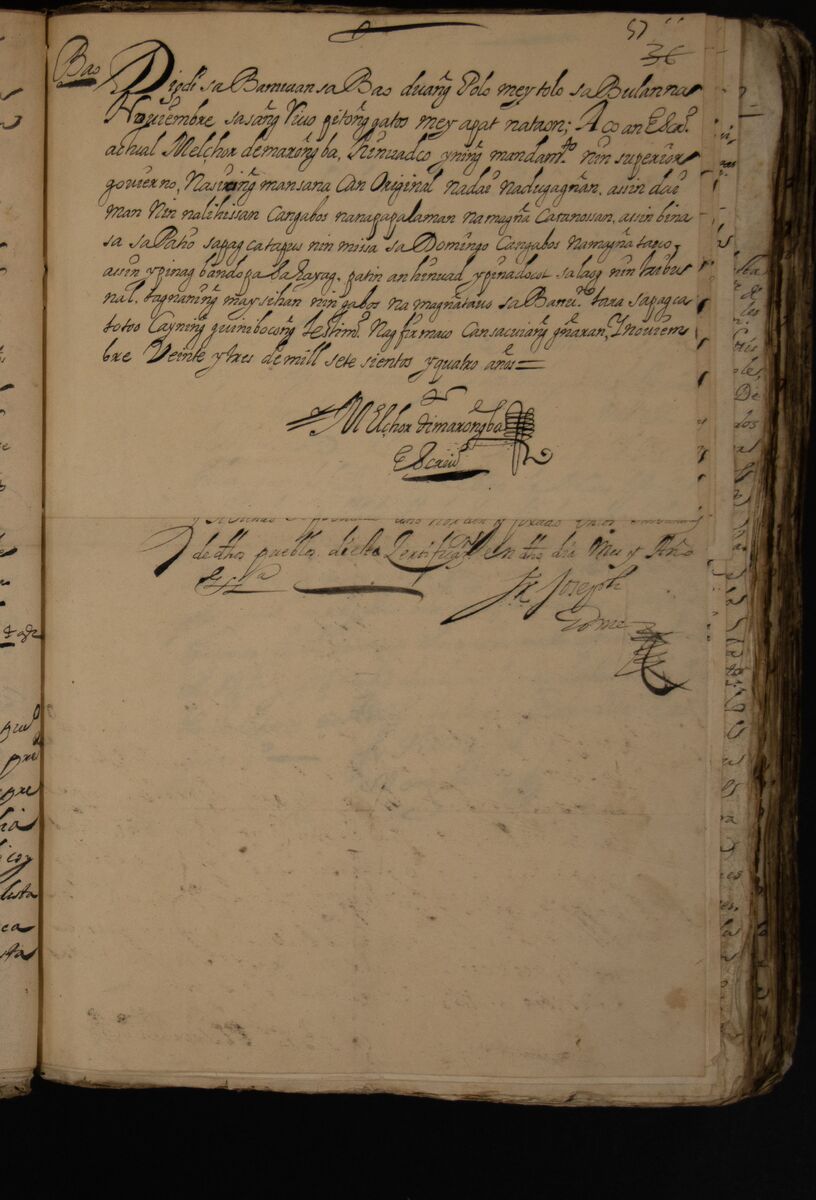 57
36
Bao
Didi sa Banuaan sa Bao duãng Polo mey tolo sa Bulan na
Nouiembre sa sãng Vivo pitõng gatos mey apat na taon; Aco an Escr.o
actual Melchor dimarõngba, hinuad co yning mandam.to nin superior
gouierno, Nasuring mansana Can Original na daí nadugagñan, assin daí
man nin nalihissan Cangabos na napapalaman na mgña Catunossan, assin bina
sa sa Patio sa pagcatapus nin missa sa Domingo Cangabos na mgña tauo,
assin ypinag bando pa sa Layag, patin an hinuad ypinadocot sa laog nin tribu
nal, tagnaning may sihan nin gabos na mgña tauo sa Banu.n tara sa pag ca
totoo Cayning guinibo cong testim.o Nag firma aco Can sacuiang gñaran, Y Nouiem
bre Veinte y tres de mill sete sientos y quatro años
Melchor dimarongba
Escriu.o
de dhos pueblos di esta Zertificaz.n en dho dia Mes y Año
Fr Joseph